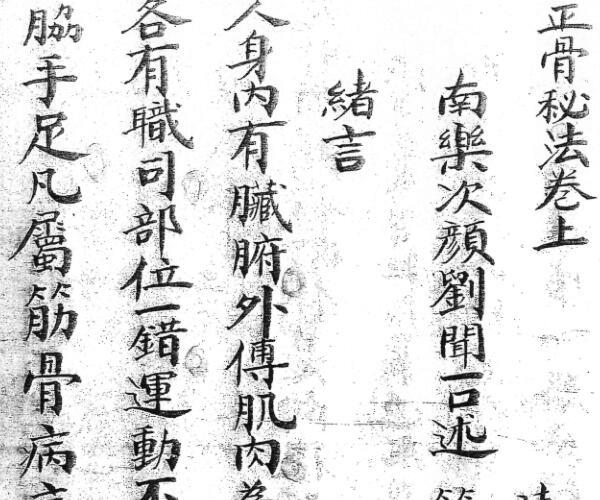 正骨秘法卷上
南樂次顏劉聞一口述
緒言
人身內有臟腑外傅肌肉為
各有職司部位一錯運動不
脇手足凡屬筋骨病